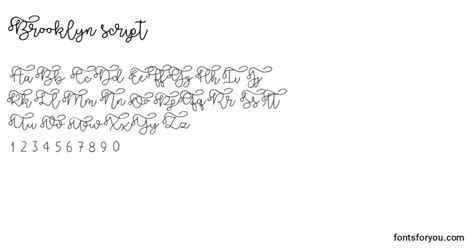 Brooklyn script
Aa Bb Cc Dd Ee Ff Gg Hh Ii Jj
Kk Ll Mm Nn Oo Pp Qq Rr Ss Tt
Uu Vv Ww Xx Yy Zz
1 2 3 4 5 6 7 8 9 0
fontsforyou.com